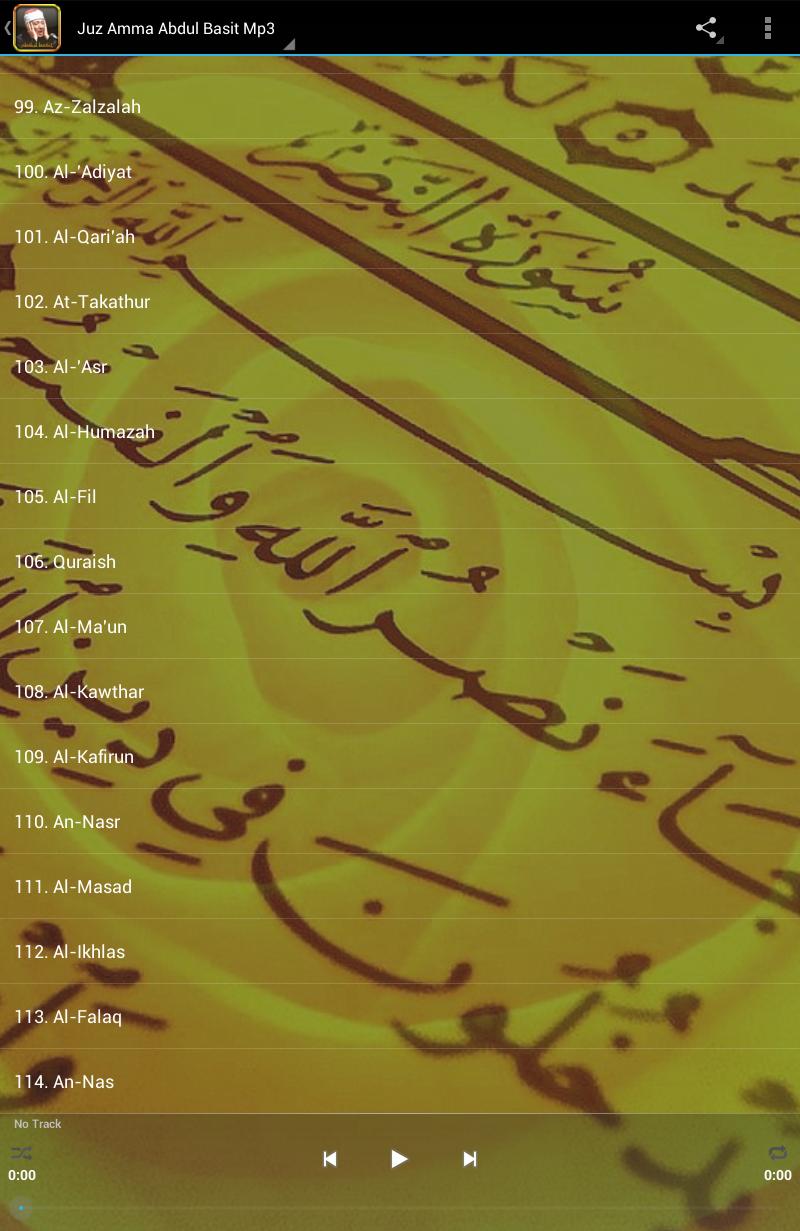 Juz Amma Abdul Basit Mp3
99. Az-Zalzalah
100. Al-'Adiyat
101. Al-Qari'ah
102. At-Takathur
103. Al-'Asr
104. Al-Humazah
105. Al-Fil
106. Quraish
107. Al-Ma'un
108. Al-Kawthar
109. Al-Kafirun
110. An-Nasr
111. Al-Masad
112. Al-Ikhlas
113. Al-Falaq
114. An-Nas
No Track
0:00
0:00
سُورَةُ النَّصْرِ
نَصْرُ اللَّهِ وَالْفَتْحُ
فِي دِينِ